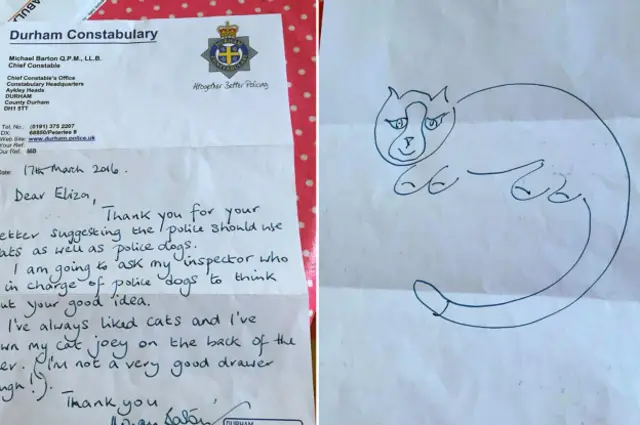 Durham Constabulary
Michael Barton Q.P.M., LL.B.
Chief Constable
Altogether Better Policing
Chief Constable's Office
Constabulary Headquarters
Aykley Heads
DURHAM
County Durham
DH1 5TT
Tel. No.: (0191) 375 2207
DX: 68850/Peterlee 8
Web Site: www.durham.police.uk
Your Ref:
Our Ref: MB
Date: 17th March 2016.
Dear Eliza,
Thank you for your
etter suggesting the police should use
ats as well as police dogs.
I am going to ask my inspector who
in charge of police dogs to think
ut your good idea.
I've always liked cats and I've
wn my cat joey on the back of the
er. (I'm not a very good drawer
ugh!).
Thank you
DURHAM